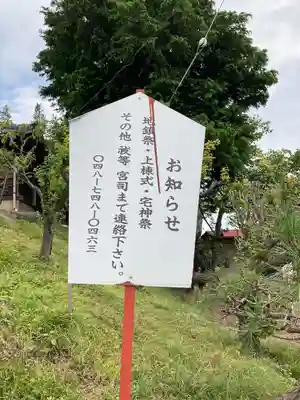 お知らせ
地鎮祭・上棟式・宅神祭
その他 祓等 宮司まで連絡下さい。
〇四八-七四八-〇四六三